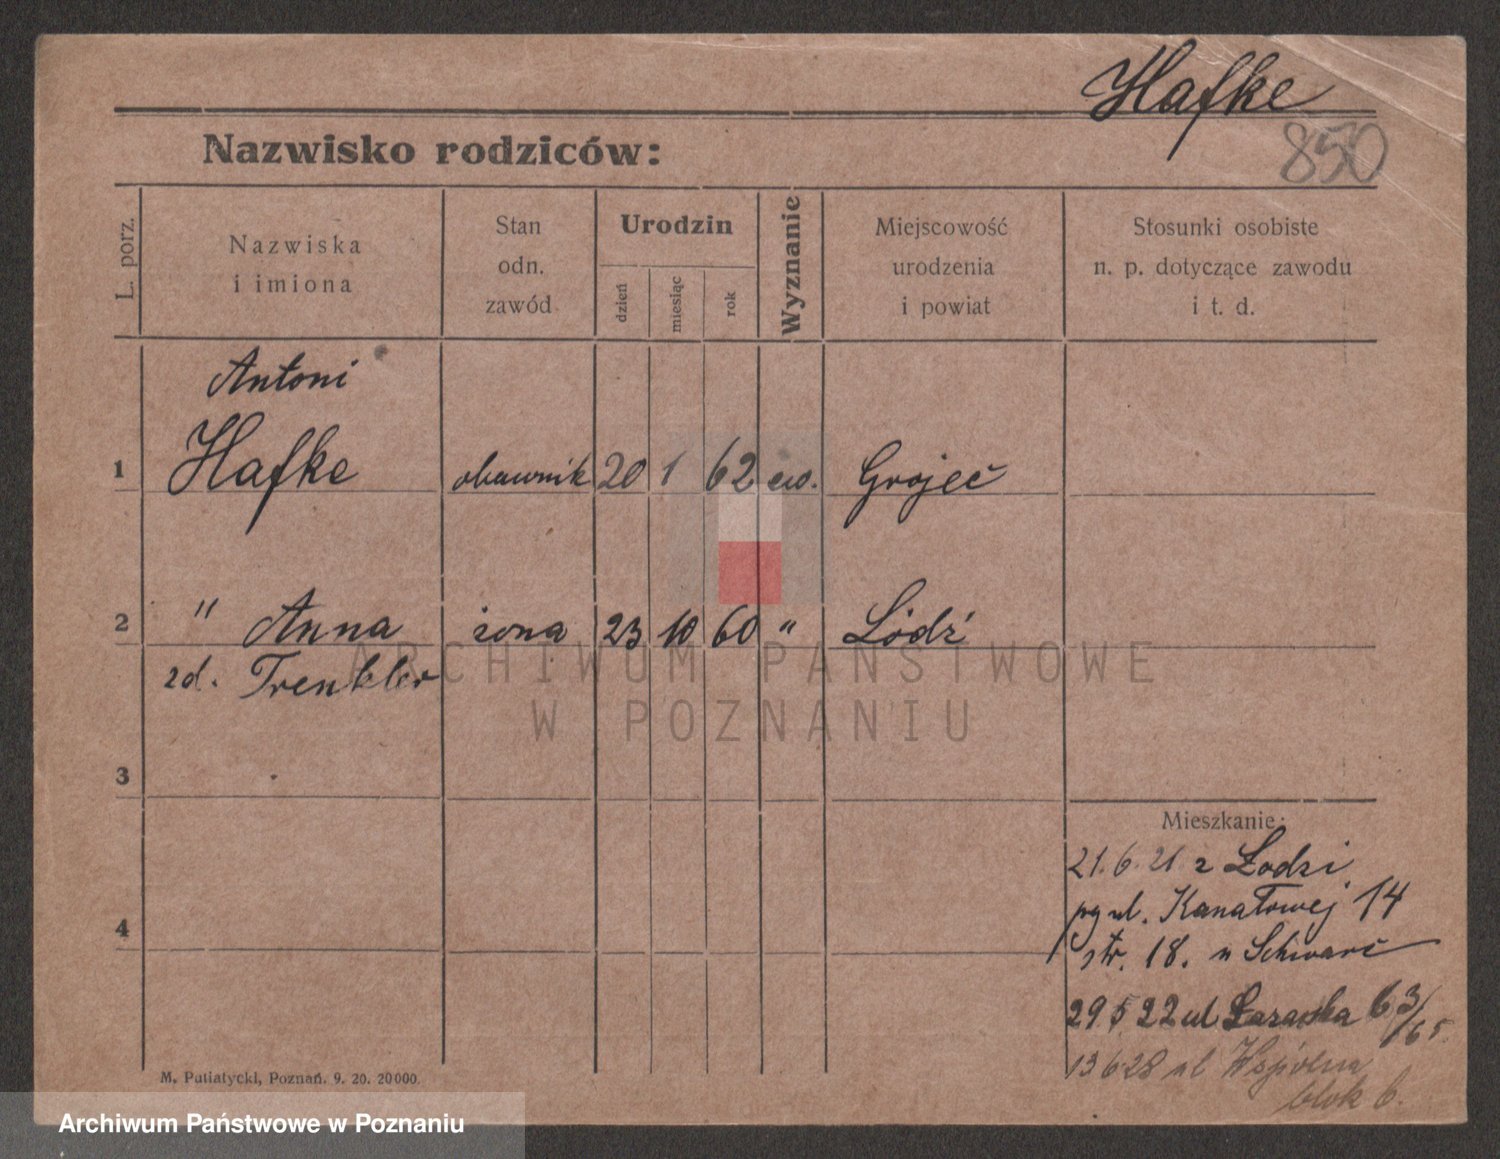 Hafke
850
Nazwisko rodziców:
L. porz.
Nazwiska
i imiona
Stan
odn.
zawód
Urodzin
dzień
miesiąc
rok
Wyznanie
Miejscowość
urodzenia
i powiat
Stosunki osobiste
n. p. dotyczące zawodu
i t. d.
Antoni
1 Hafke 20 1 62 ew. Grojec
2 " Anna żona 23 10 60 " Łódź
zd. Trenkler
3
4
Mieszkanie:
21.6.21 z Łodzi
ul. Kanałowej 14
str. 18. u Schwarc
29 5 22 ul 63/65
13 6 28 ul Wspólna
blok 6.
M. Putiatycki, Poznań. 9. 20. 20000.
ARCHIWUM PAŃSTWOWE
W POZNANIU
Archiwum Państwowe w Poznaniu